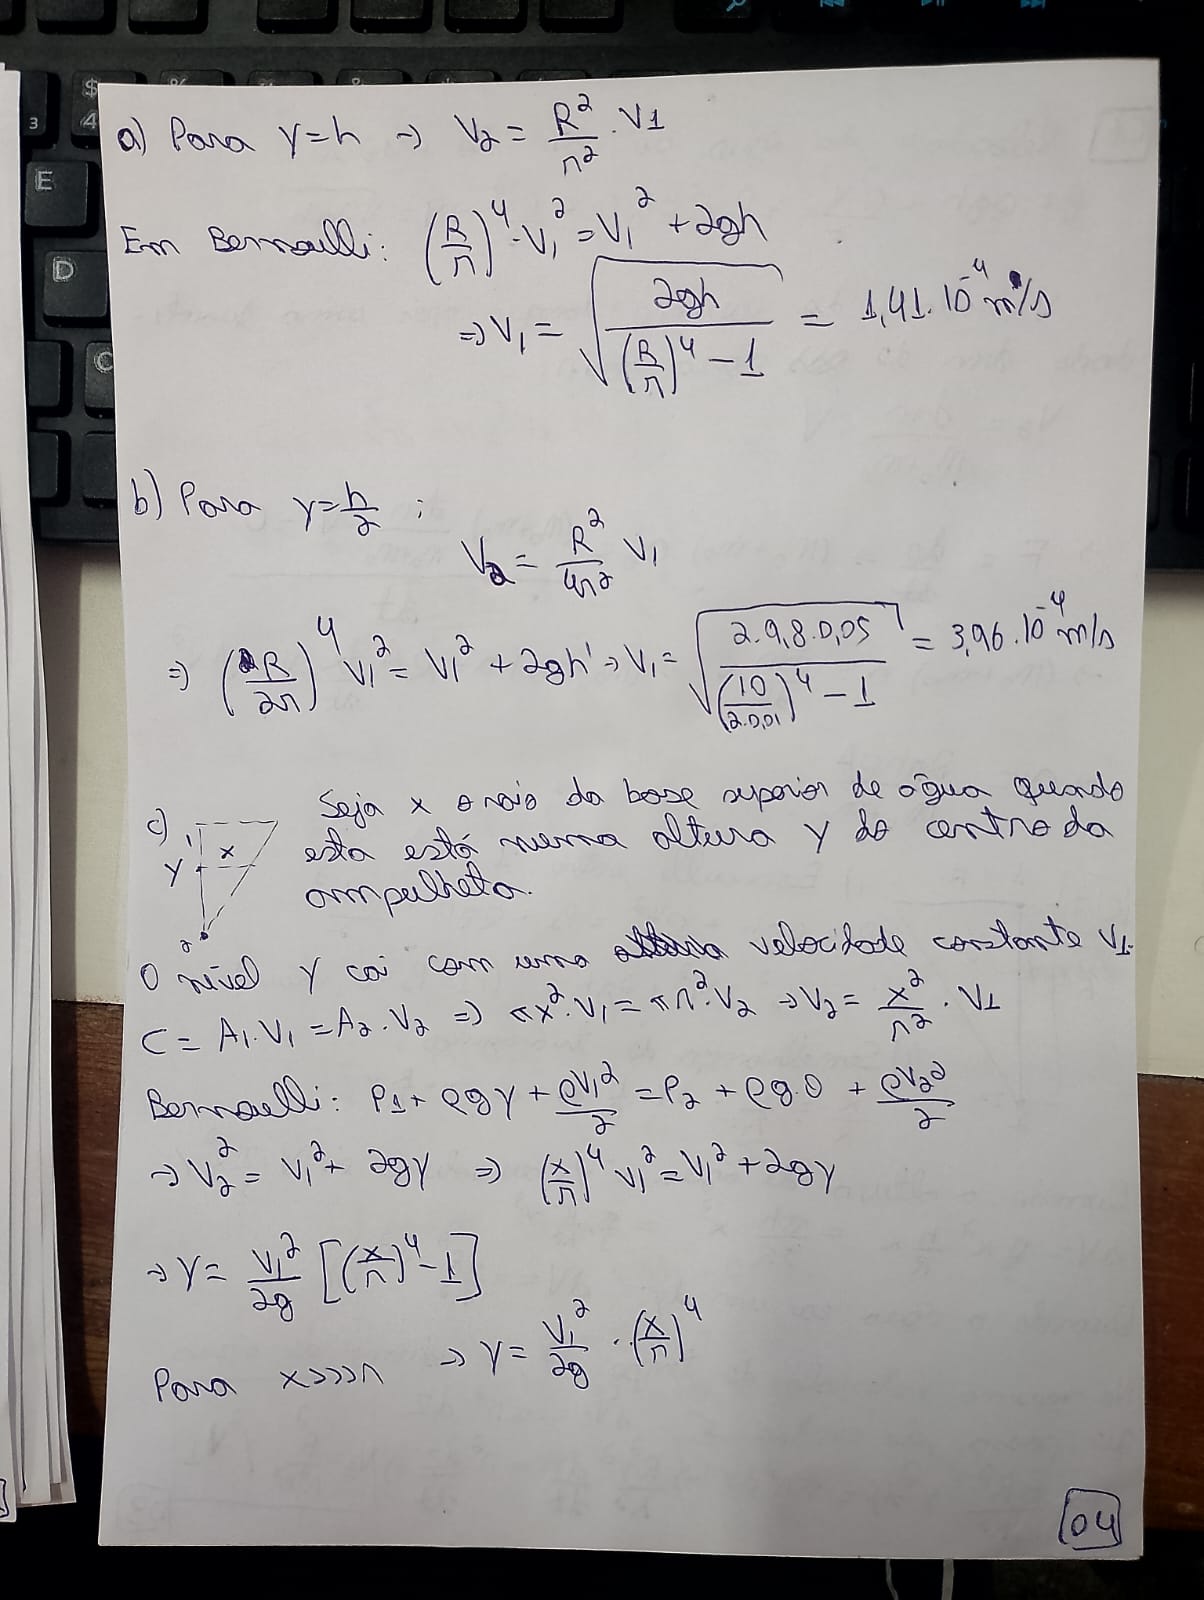 3
$
4
%
&
E
D
C
a) Para y=h → V₂ = R²/r² . V1
Em Bernoulli: (R/r)⁴.V₁² = V₁² + 2gh
⇒ V₁ = √(2gh/((R/r)⁴ - 1)) = 1,41.10⁻⁴ m/s
b) Para y=h/2 ;
V₂ = R²/4r² V₁
⇒ (R/2r)⁴ V₁² = V₁² + 2gh' → V₁ = √(2.9,8.0,05/((10/2.0,01)⁴ - 1)) = 3,96.10⁻⁴ m/s
c) Seja x o raio da base superior de água quando
esta está numa altura y do centro da
ampulheta.
1
y
x
2
O nível y cai com uma velocidade constante V1.
C = A₁.V₁ = A₂.V₂ ⇒ πx².V₁ = πr².V₂ → V₂ = x²/r² . V1
Bernoulli: P1 + ρgy + ρV₁²/2 = P₂ + ρg.0 + ρV₂²/2
→ V₂² = V₁² + 2gy ⇒ (x/r)⁴ V₁² = V₁² + 2gy
→ y = V₁²/2g [(x/r)⁴ - 1]
Para x>>>r → y = V₁²/2g . (x/r)⁴
04